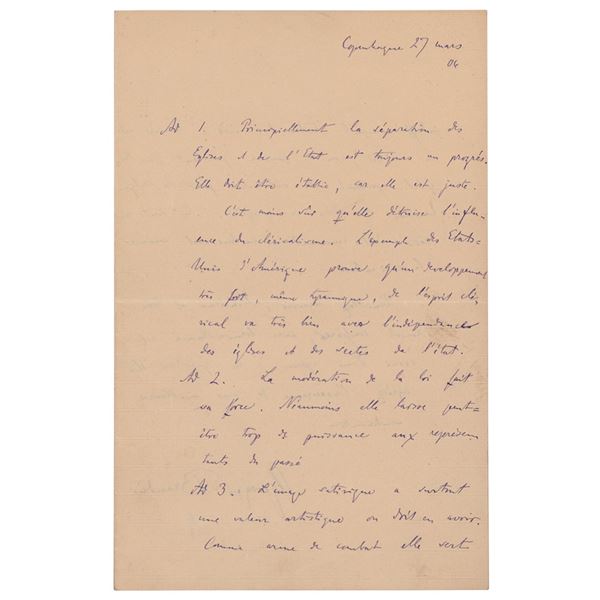 Copenhague 27 mars
06
Ad 1. Principiellement la séparation des
Eglises et de l'Etat est toujours un progrès.
Elle doit être établie, car elle est juste.
C'est moins sûr qu'elle détruise l'influ-
ence du cléricalisme. L'exemple des Etats-
Unis d'Amérique prouve qu'un developpement
très fort, même tyrannique, de l'esprit clé-
rical va très bien avec l'indépendance
des églises et des sectes de l'état.
Ad 2. La modération de la loi fait
sa force. Néanmoins elle laisse peut-
être trop de puissance aux représen
tants du passé
Ad 3. L'image satirique a surtout
une valeur artistique ou doit en avoir.
Comme arme de combat elle sert